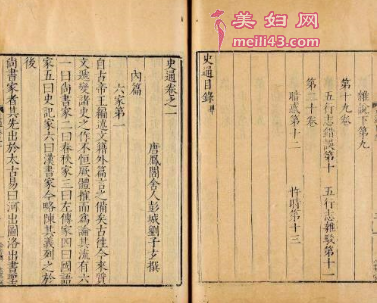 美妇网
meili43.com
雜說下第九
第十九卷
五行志錯誤第十 五行志雜駁第十一
第二十卷
暗惑第十二 忤時第十三
史通目錄
史通卷之一
唐鳳閣舍人彭城劉子玄撰
內篇
六家第一
自古帝王編述文籍外篇言之備矣古往今來質
文遞變諸史之作不恒厥體搉而為論其流有六
一曰尚書家二曰春秋家三曰左傳家四曰國語
家五曰史記家六曰漢書家今略陳其義列之於
後
尚書家者其先出於太古易曰河出圖洛出書聖